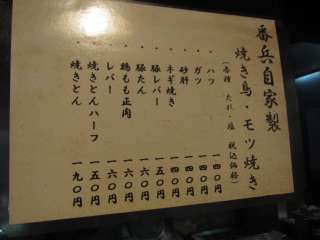 番兵自家製
焼き鳥・モツ焼き
(各種 たれ・塩 税込価格)
・ハツ 一四〇円
・ガツ 一四〇円
・砂肝 一四〇円
・ネギ焼き 一四〇円
・豚レバー 一五〇円
・豚たん 一六〇円
・鶏もも正肉 一六〇円
・レバー 一六〇円
・焼きとんハーフ 一五〇円
・焼きとん 一九〇円